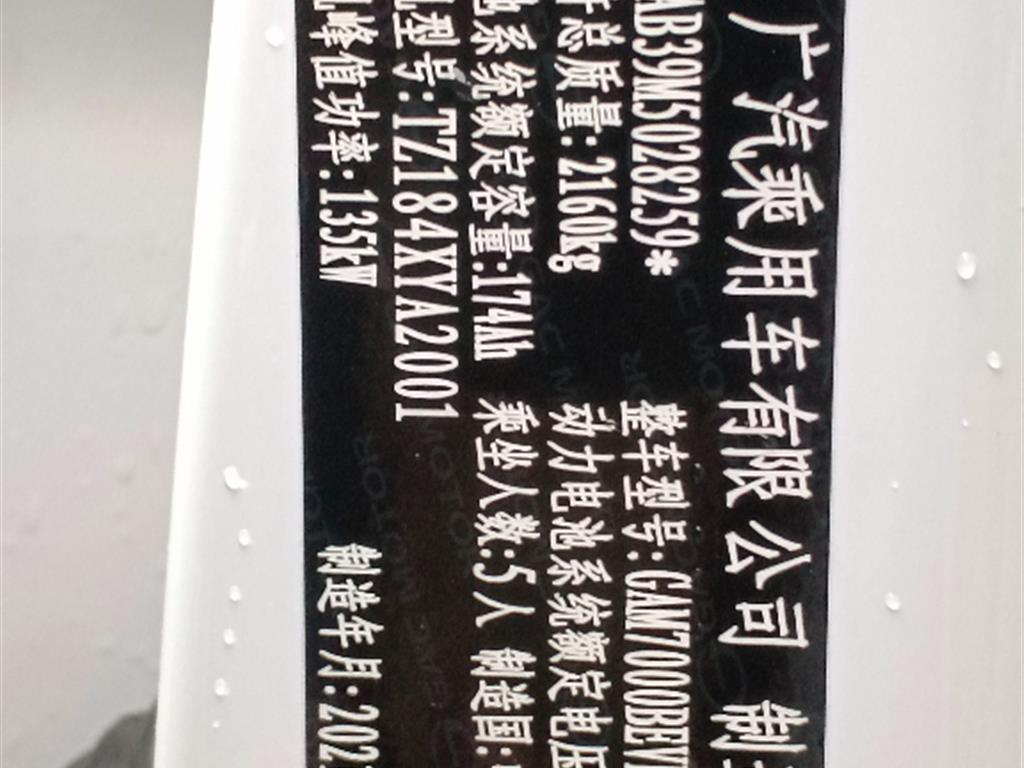 广汽乘用车有限公司 制造
AB39M5028259* 整车型号:GAM7000BEV
总质量:2160kg 动力电池系统额定电压
系统额定容量:174Ah 乘坐人数:5人 制造国:
型号:TZ184XYA2001
峰值功率:135kW 制造年月:202